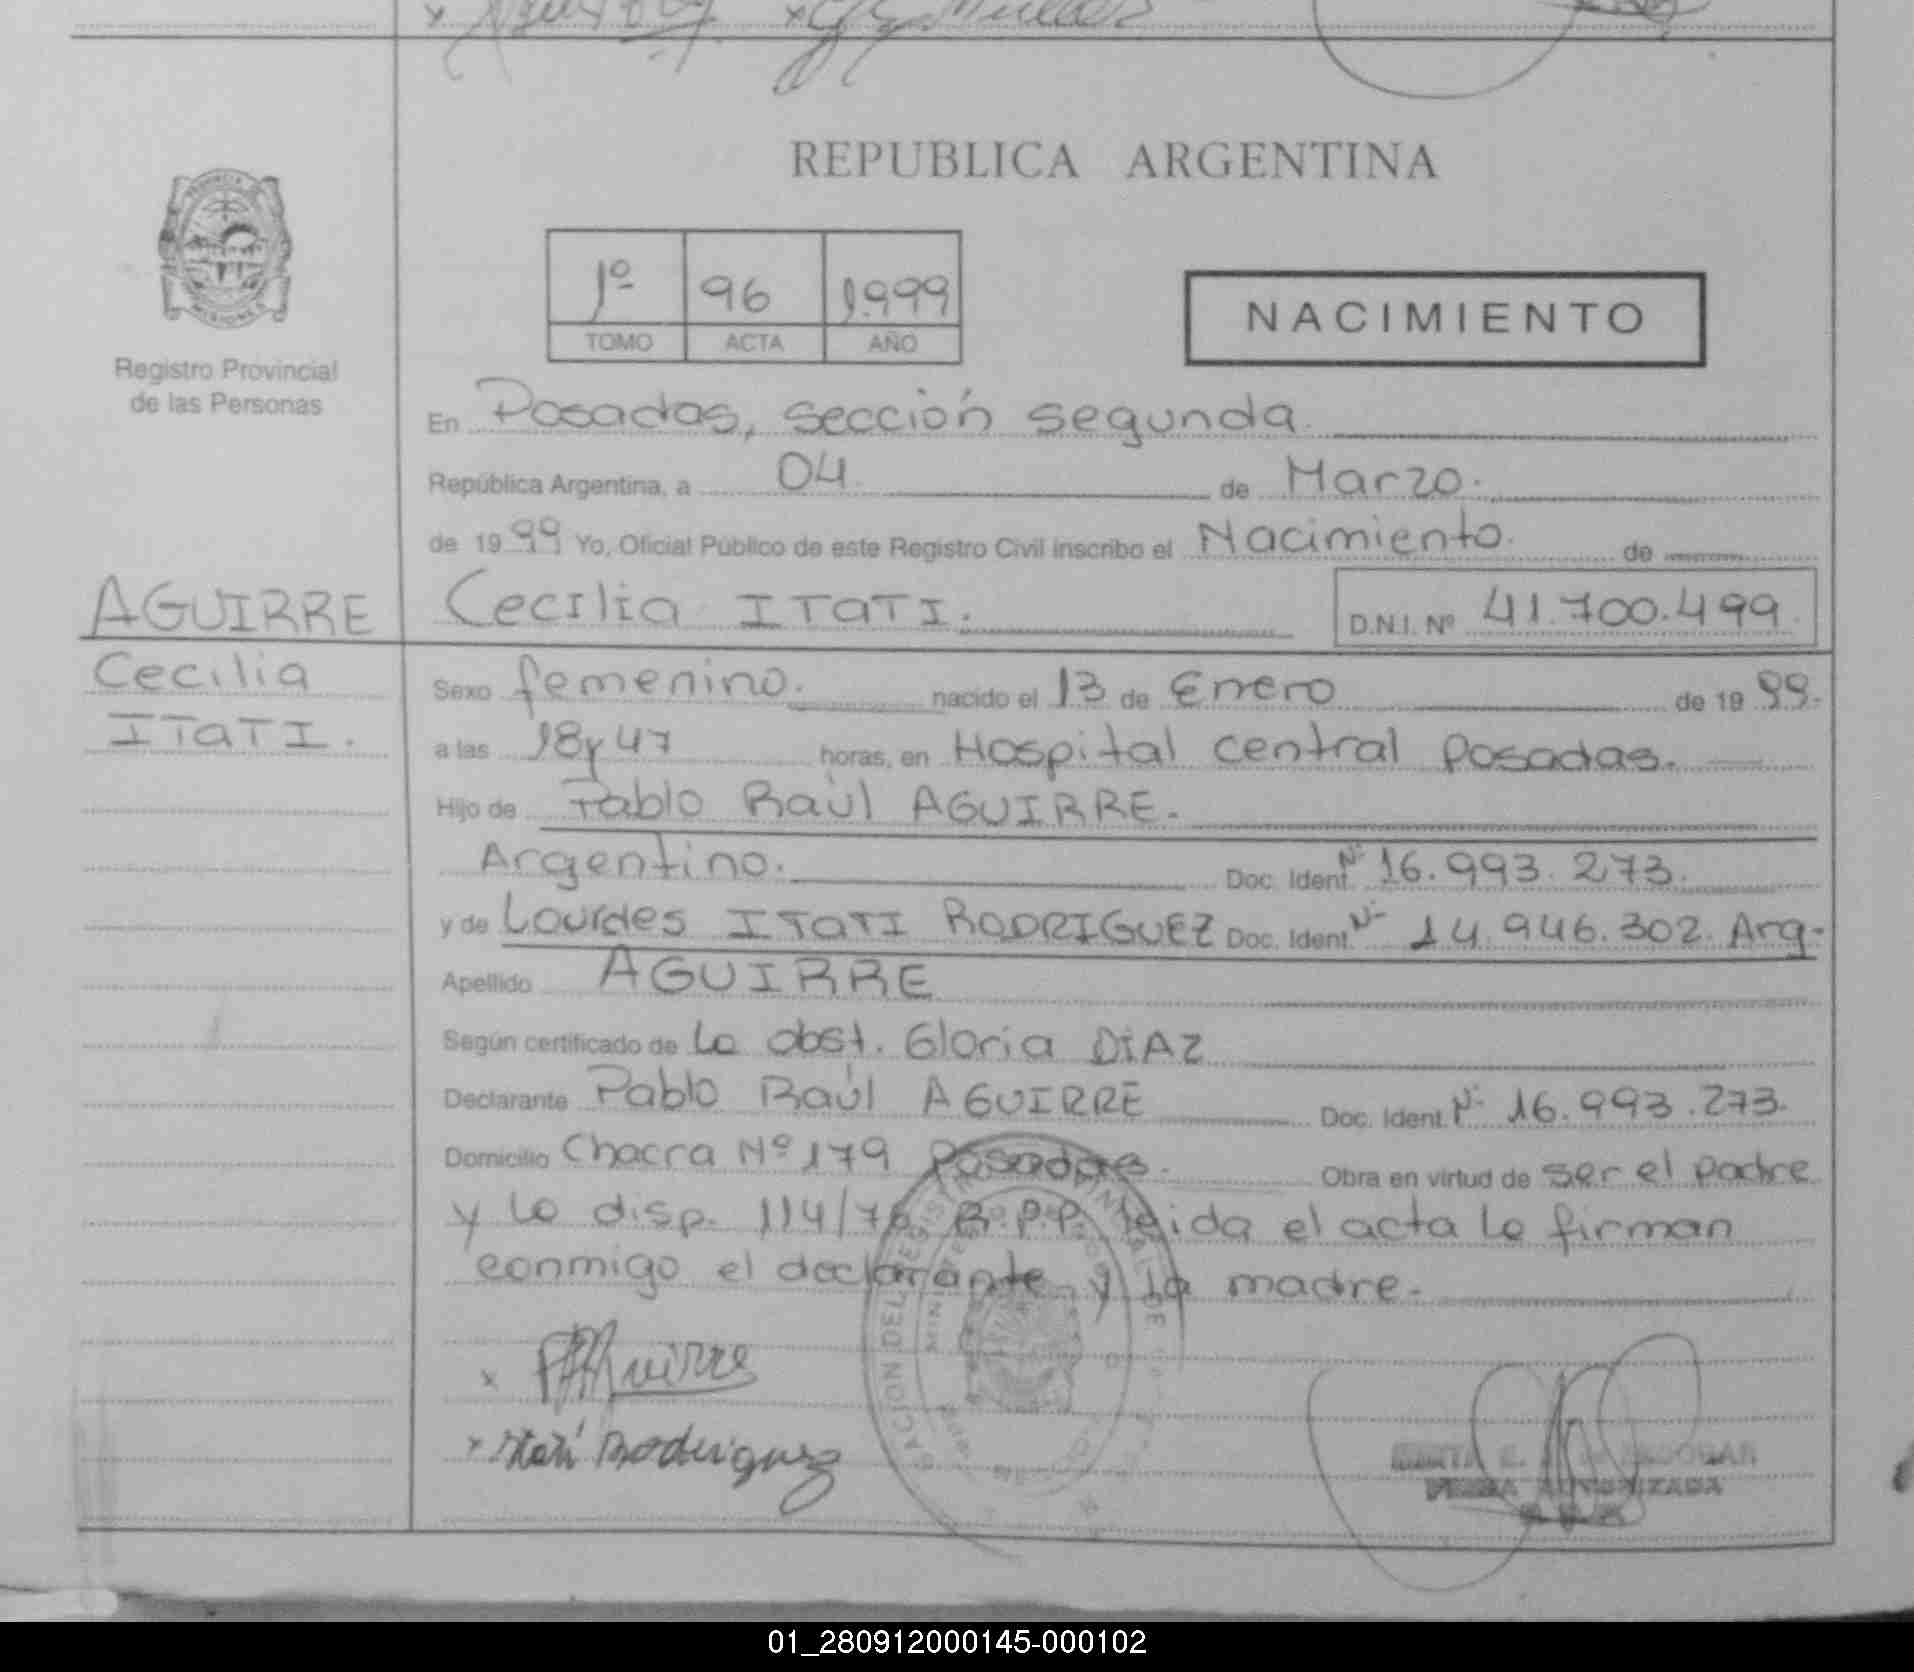 REPUBLICA ARGENTINA
1º 96 1.999
TOMO ACTA AÑO
NACIMIENTO
Registro Provincial
de las Personas
En Posadas, sección segunda.
República Argentina, a 04. de Marzo.
de 19 99 Yo, Oficial Público de este Registro Civil inscribo el Nacimiento. de
AGUIRRE
Cecilia ITATI.
Cecilia ITATI. D.N.I. Nº 41.700.499.
Sexo femenino. nacido el 13 de Enero de 19 99.
a las 18 y 47 horas, en Hospital central Posadas.
Hijo de Pablo Raúl AGUIRRE.
Argentino. Doc. Ident. Nº 16.993.273.
y de Lourdes ITATI RODRIGUEZ Doc. Ident. Nº 14.946.302. Arg.
Apellido AGUIRRE
Según certificado de La obst. Gloria DIAZ
Declarante Pablo Raúl AGUIRRE Doc. Ident. Nº 16.993.273.
Domicilio Chacra Nº 179 Posadas. Obra en virtud de ser el padre
y La disp. 114/76 R.P.P. leida el acta La firman
conmigo el declarante y la madre.
x PRAguirre
x Itatí Rodriguez
01_280912000145-000102